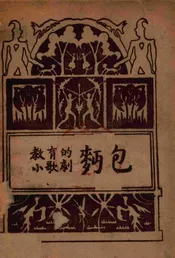 教育的
小歌劇
麪包